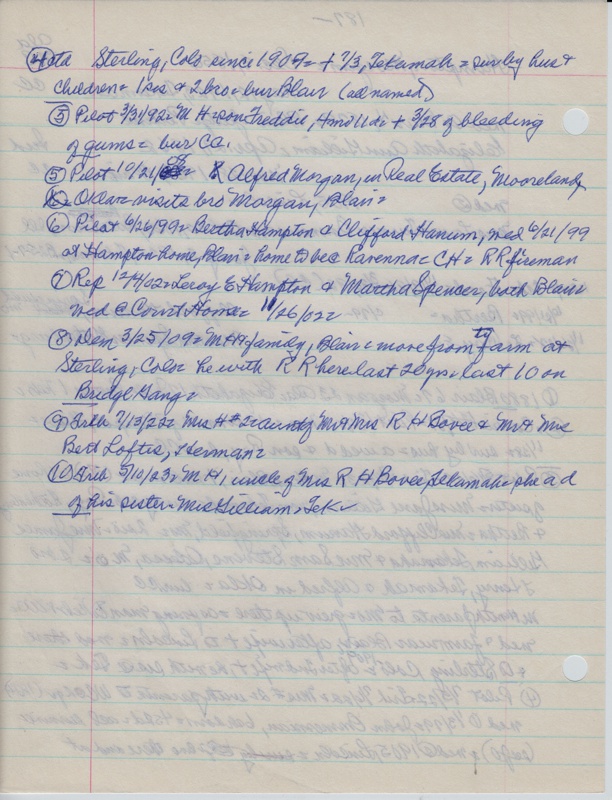 187—
④ ctd Sterling, Colo since 1909 = + 7/3, Tekamah = sur by hus +
children = 1 sis & 2 bro = bur Blair (all named)
⑤ Pilot 3/31/92 = M H = son Freddie, 4 mo 11 da + 3/28 of bleeding
of gums = bur Ca.
⑤ Pilot 10/21/08 = Alfred Morgan, in Real Estate, Mooreland,
Okla = visits bro Morgan, Blair =
⑥ Pilot 6/26/99 = Bertha Hampton & Clifford Hanium, wed 6/21/99
at Hampton home, Blair = home to be @ Ravenna = CH = R R fireman
⑦ Rep 12/4/02 = Leroy E Hampton & Martha Spencer, both Blair
wed @ Court House = 11/26/02 =
⑧ Dem 3/25/09 = M H + family, Blair = move from to farm at
Sterling, Colo = he with R R here last 20 yrs = last 10 on
Bridge Gang =
⑨ Trib 7/13/22 = Mrs H #2 = aunt of Mr & Mrs R H Bovee & Mr & Mrs
Bert Loftis, Herman =
⑩ Trib 5/10/23 = M H, uncle of Mrs R H Bovee, Tekamah = he @ d
of his sister = Mrs Gilliam, Tek